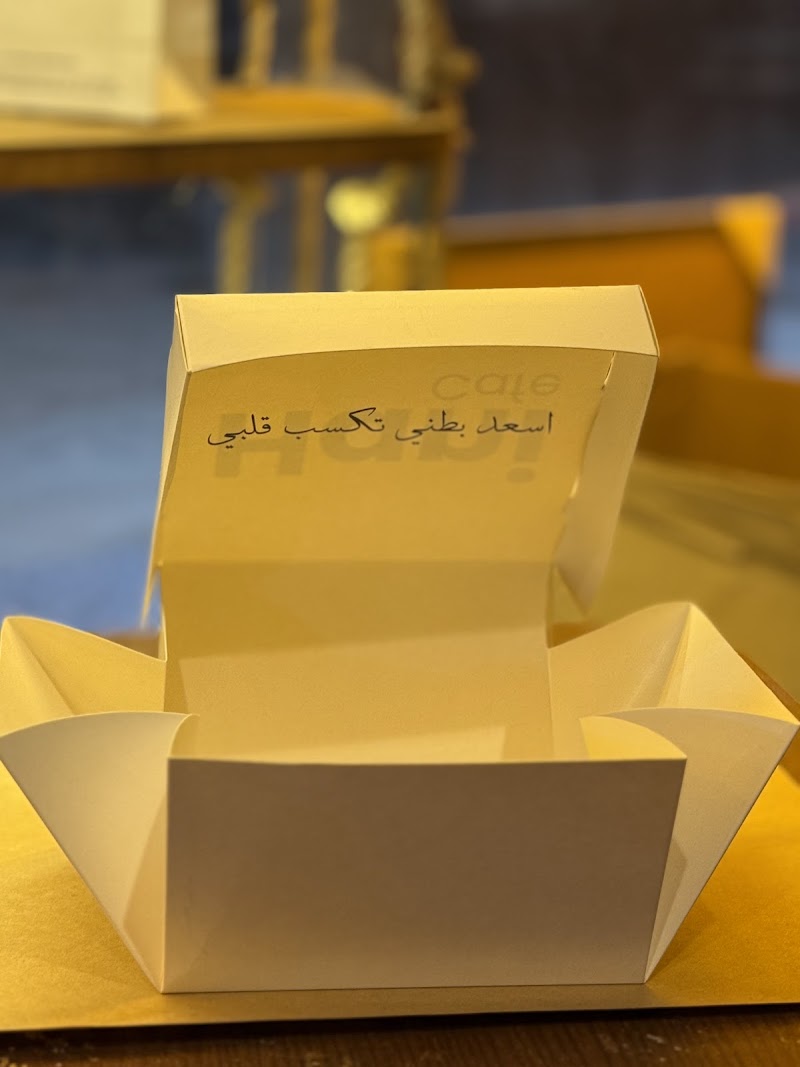 Cafe
Hapi
اسعد بطني تكسب قلبي